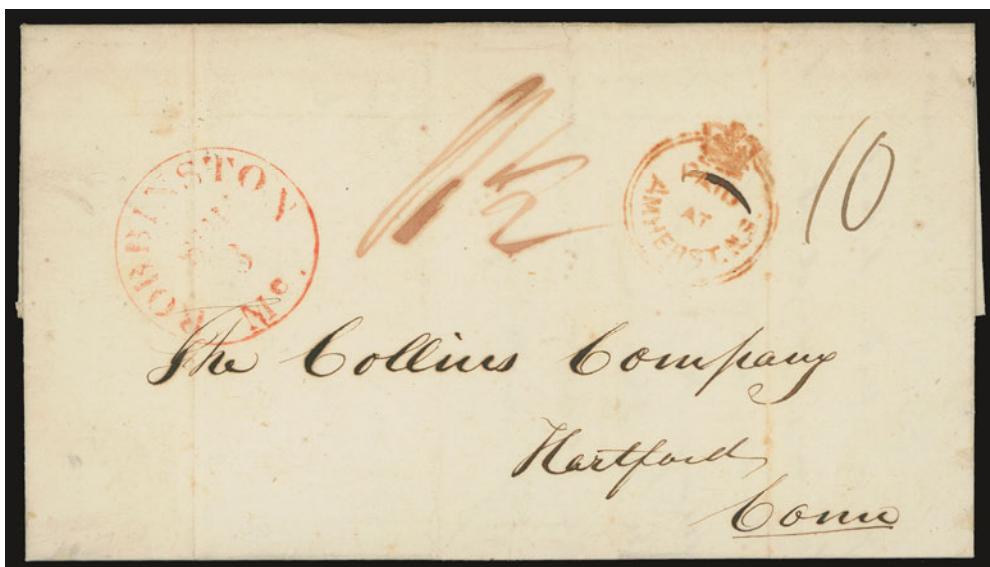 ROBBINSTON Me.
PAID
AT
AMHERST. N.S.
10
The Collins Company
Hartford
Conn